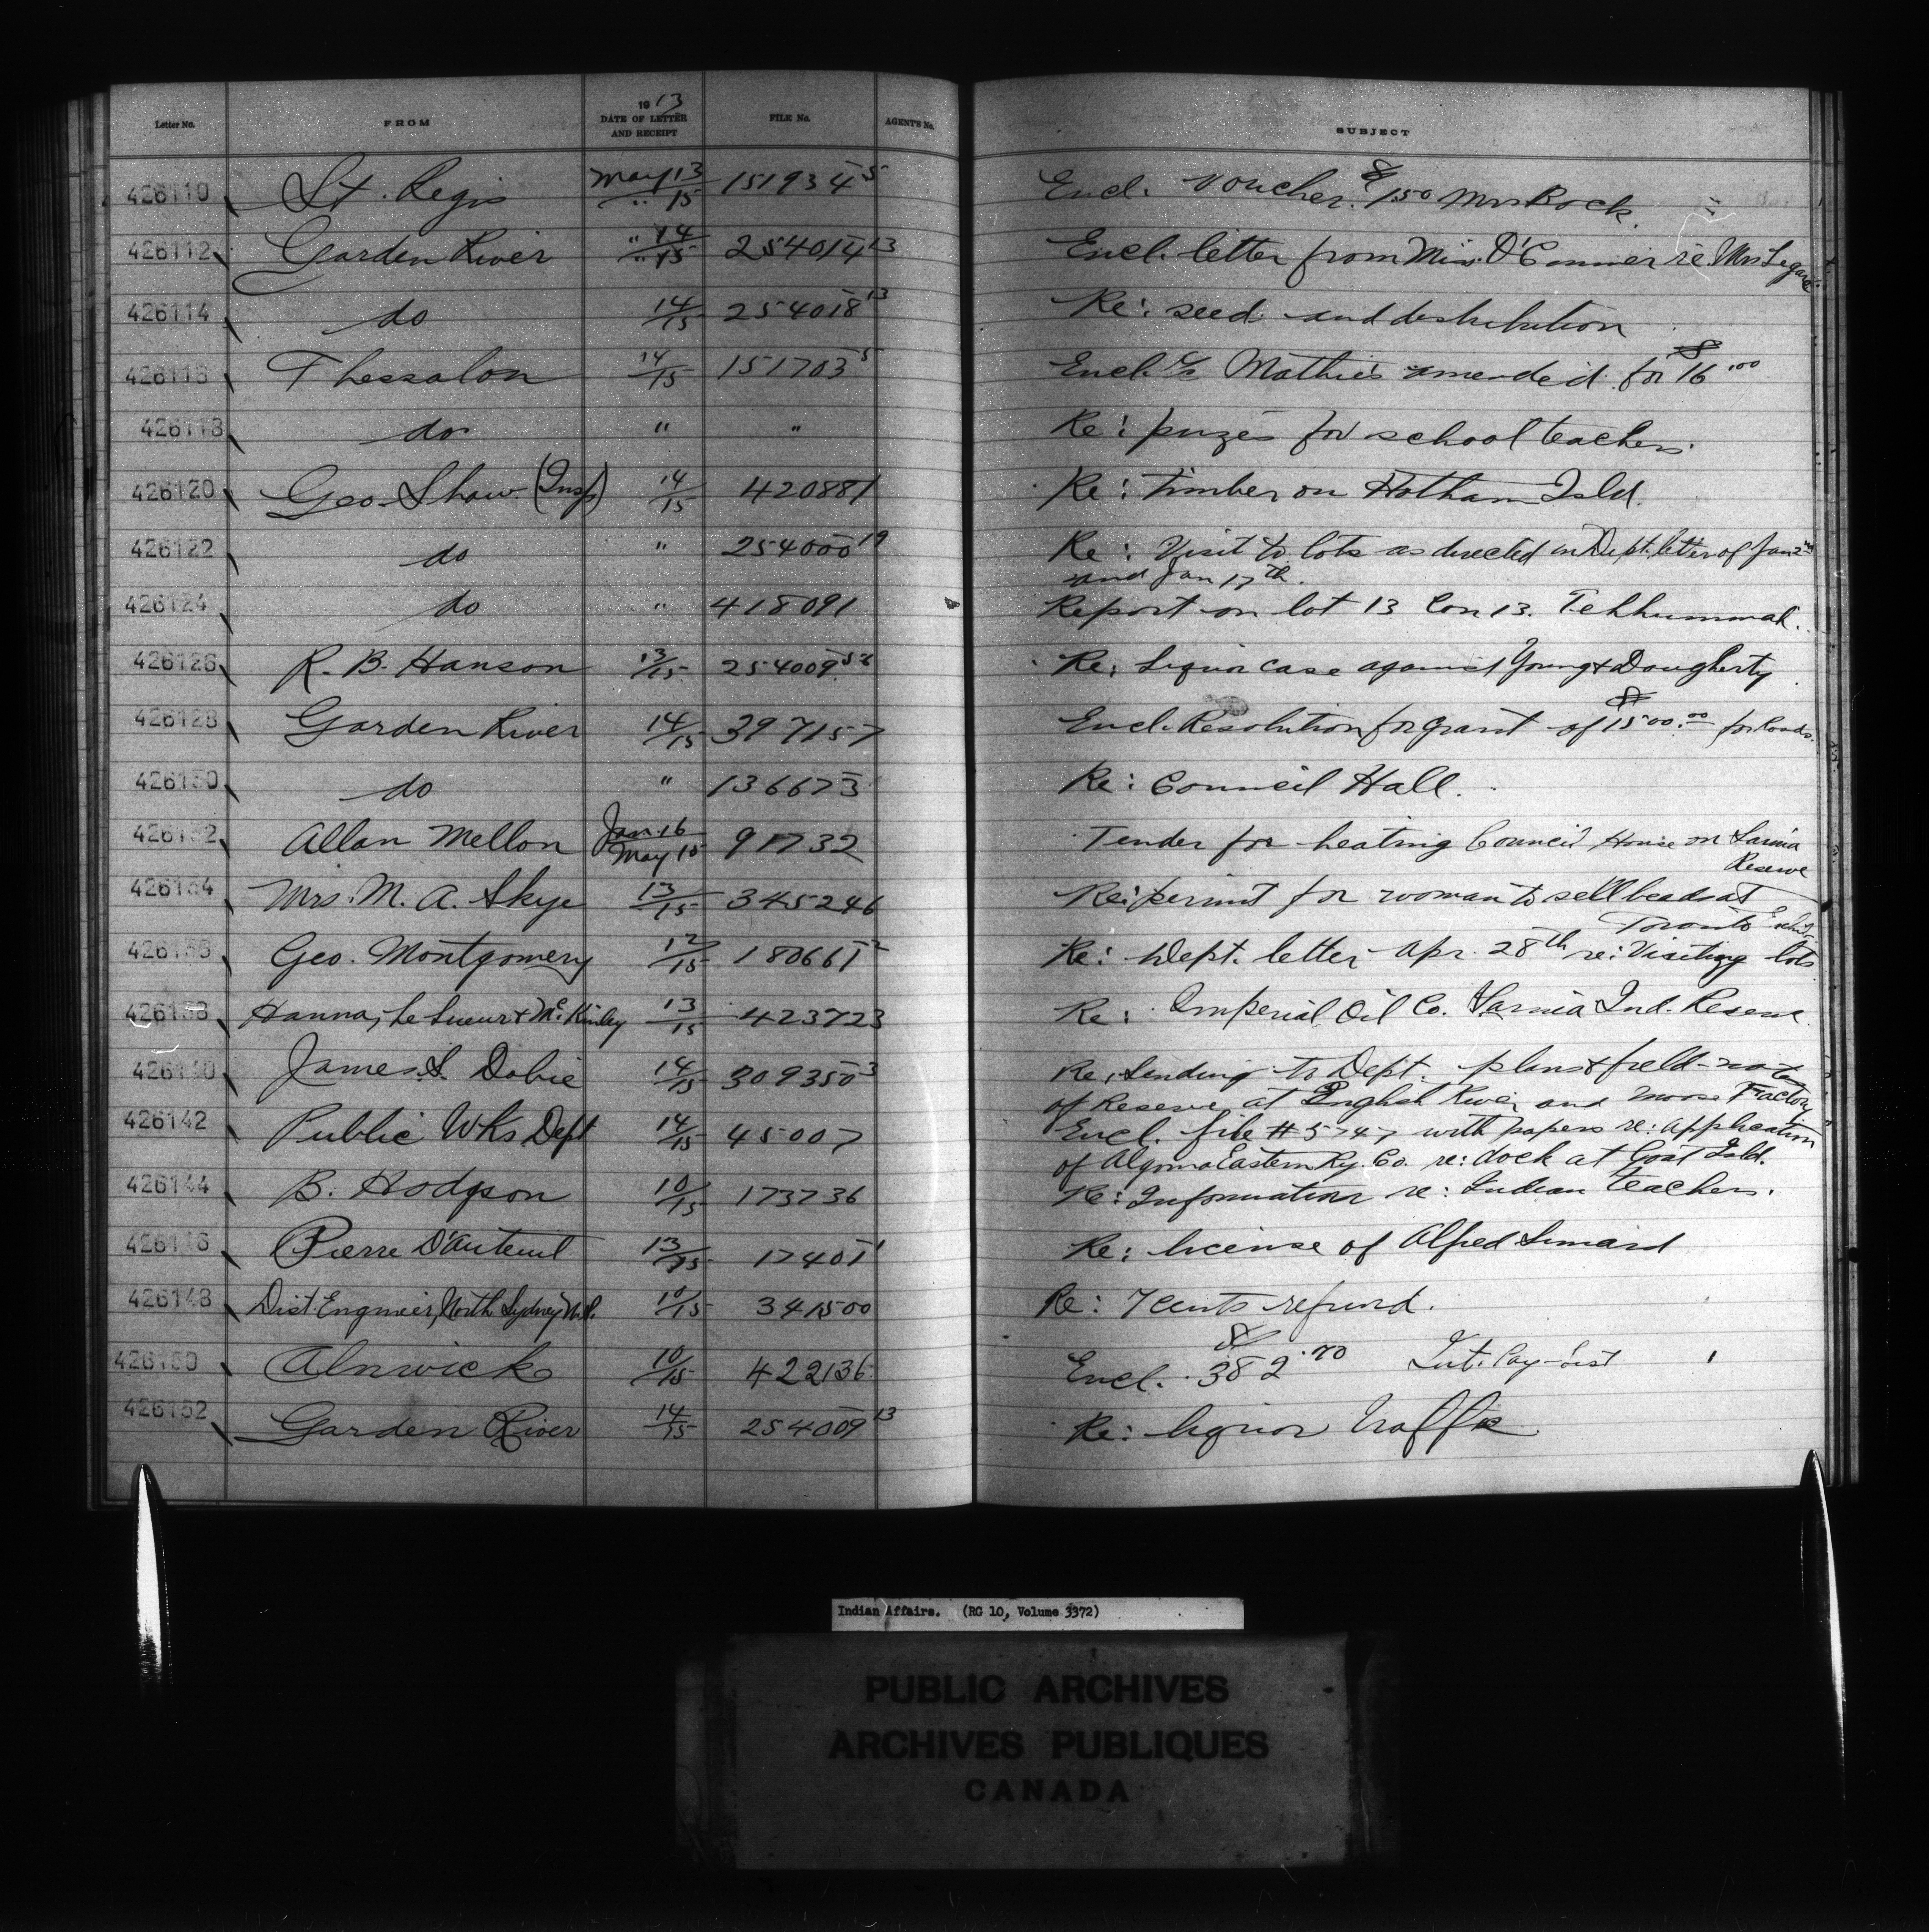 Letter No. FROM 1913 DATE OF LETTER AND RECEIPT FILE No. AGENT'S No. SUBJECT
426110 St. Regis May 13 / " 15 151934-5 Encl. voucher. $1.50 Mrs Bock.
426112 Garden River " 14 / " 15 254014-13 Encl. letter from Miss O'Connor re Mrs Legarde
426114 do 14/15 254018-13 Re: seed and distribution
426116 Thessalon 14/15 151703-5 Encl. Mathie's amended for $16.00
426118 do " " Re: prizes for school teachers.
426120 Geo. Shaw (Insp) 14/15 420881 Re: Timber on Hotham Isld.
426122 do " 254000-19 Re: Visit to lots as directed in Dept. letter of Jan 2nd
and Jan 17th.
426124 do " 418091 Report on lot 13 Con 13. Tehkummah.
426126 R. B. Hanson 13/15 254009 Re: Liquor case against Young & Dougherty
426128 Garden River 14/15 397157 Encl. Resolution for grant of $1500.00 for Roads.
426130 do " 136673 Re: Council Hall.
426132 Allan Mellon Jan. 16 / May 15 91732 Tender for heating Council House on Sarnia
Reserve
426134 Mrs. M. A. Skye 13/15 345246 Re: permit for woman to sell beads at
Toronto Exhib.
426136 Geo. Montgomery 12/15 180661-2 Re: Dept. letter Apr. 28th re: Visiting lots
426138 Hanna, Le Sueur & McKinley 13/15 423723 Re: Imperial Oil Co. Sarnia Ind. Reserve.
426140 James S. Dobie 14/15 309350-3 Re: Sending to Dept. plans & field-notes
of Reserve at English River and Moose Factory
426142 Public Wks Dept 14/15 45007 Encl. file # 5747 with papers re: application
of Algoma Eastern Ry. Co. re: dock at Goat Isld.
426144 B. Hodgson 10/15 173736 Re: Information re: Indian teachers.
426146 Pierre D'Auteuil 13/15 17401-1 Re: license of Alfred Simard
426148 Dist. Engineer, North Sydney N.S. 10/15 341500 Re: 7 cents refund.
426150 Alnwick 10/15 422136 Encl. $382.70 Int. Pay-list
426152 Garden River 14/15 254009-13 Re: liquor traffic
Indian Affairs. (RG 10, Volume 3372)
PUBLIC ARCHIVES
ARCHIVES PUBLIQUES
CANADA